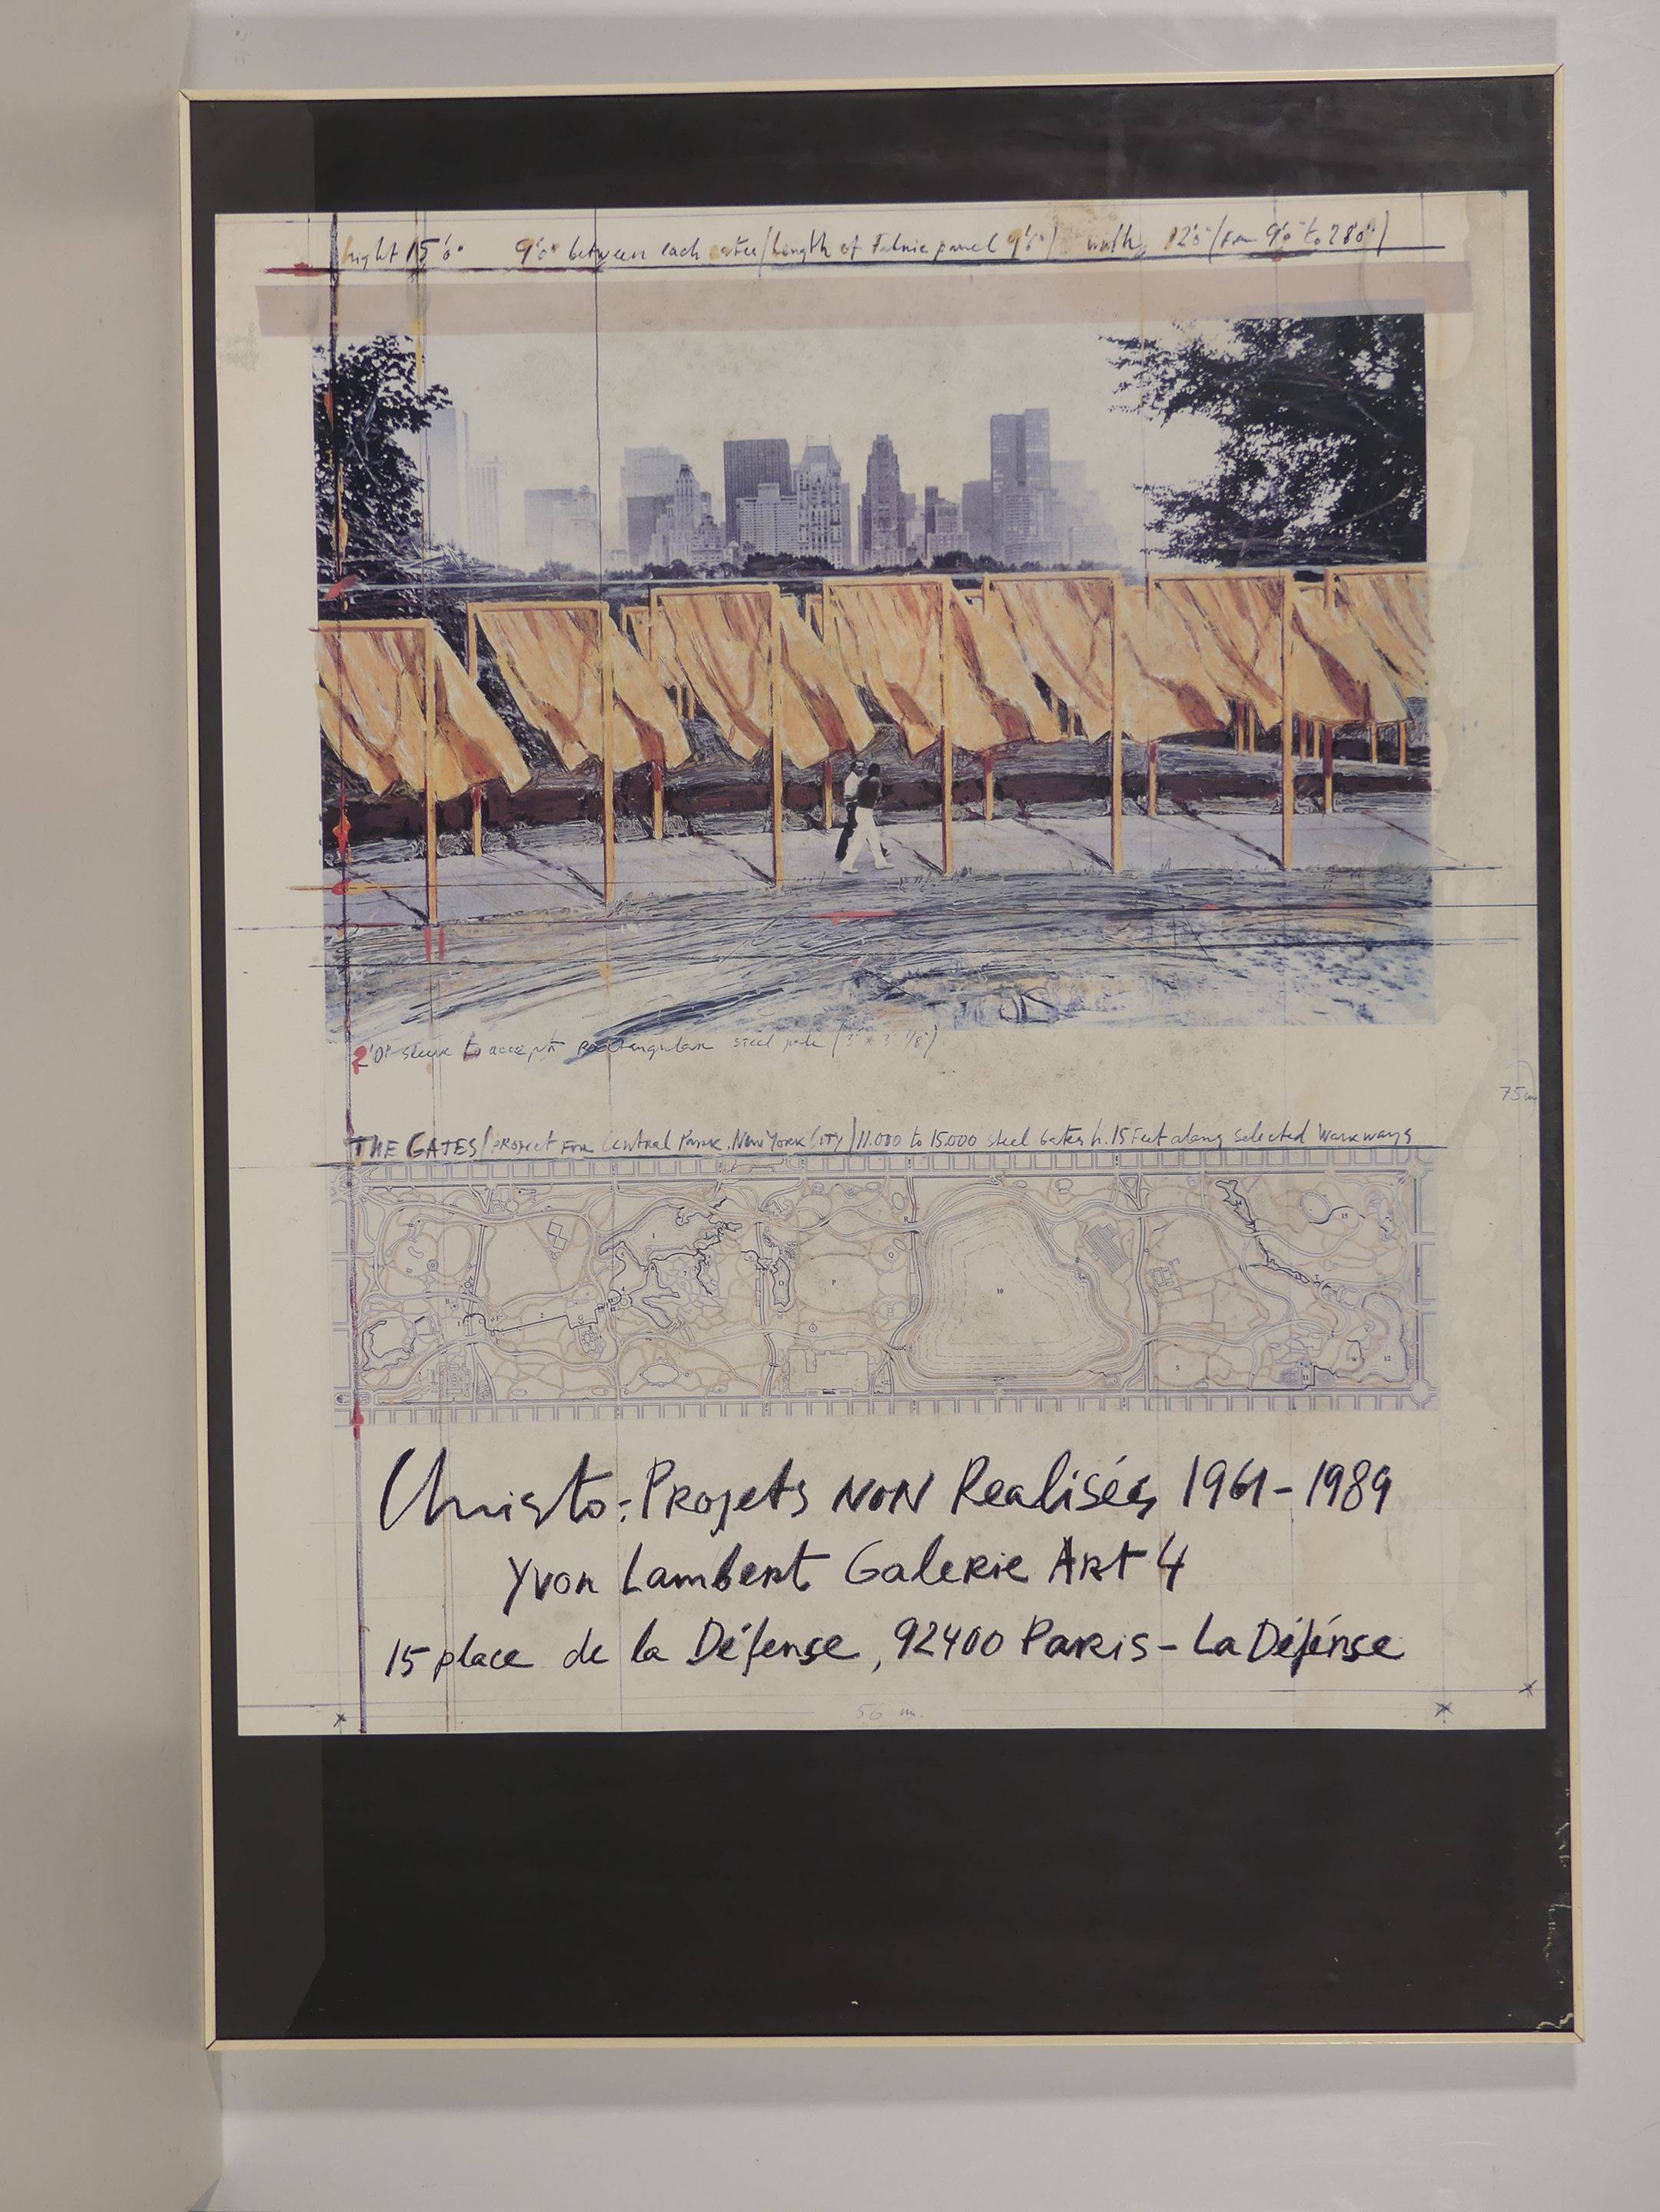 hight 15'0" 9'0" between each gates/Length of Fabric panel 9'6") width, 12'0" (from 9'0" to 28'0")
2'0" sleeve to accept rectangular steel pole (3" x 3 1/8")
THE GATES/PROJECT FOR Central Park, New York City/11.000 to 15.000 steel Gates h.15 Feet along selected walkways
75
Christo: Projets NON Realisés 1961-1989
Yvon Lambert Galerie Art 4
15 place de la Défense, 92400 Paris - La Défense
56